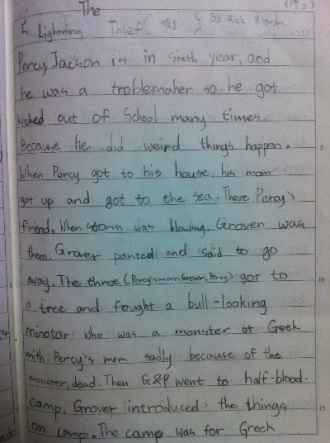 The
5. Lightning Thief #1 } By Rick
Percy Jacson is in sixth year, and
he was a troblemaher so he got
kicked out of School many times.
Because he did weird things happen.
When Percy got to his house, his mom
got up and got to the sea. There Percy's
friend, when storm was blowing. Grover was
there. Grover panted and said to go
away. The three (Percy's mom Grover, Percy) got to
a tree and fought a bull-looking
minotar who was a monster at Geek
mith. Percy's mom sadly because of the
monster, dead. Then G&P went to half-blood
camp. Grover introduced the things
on camp. The camp was for Greek